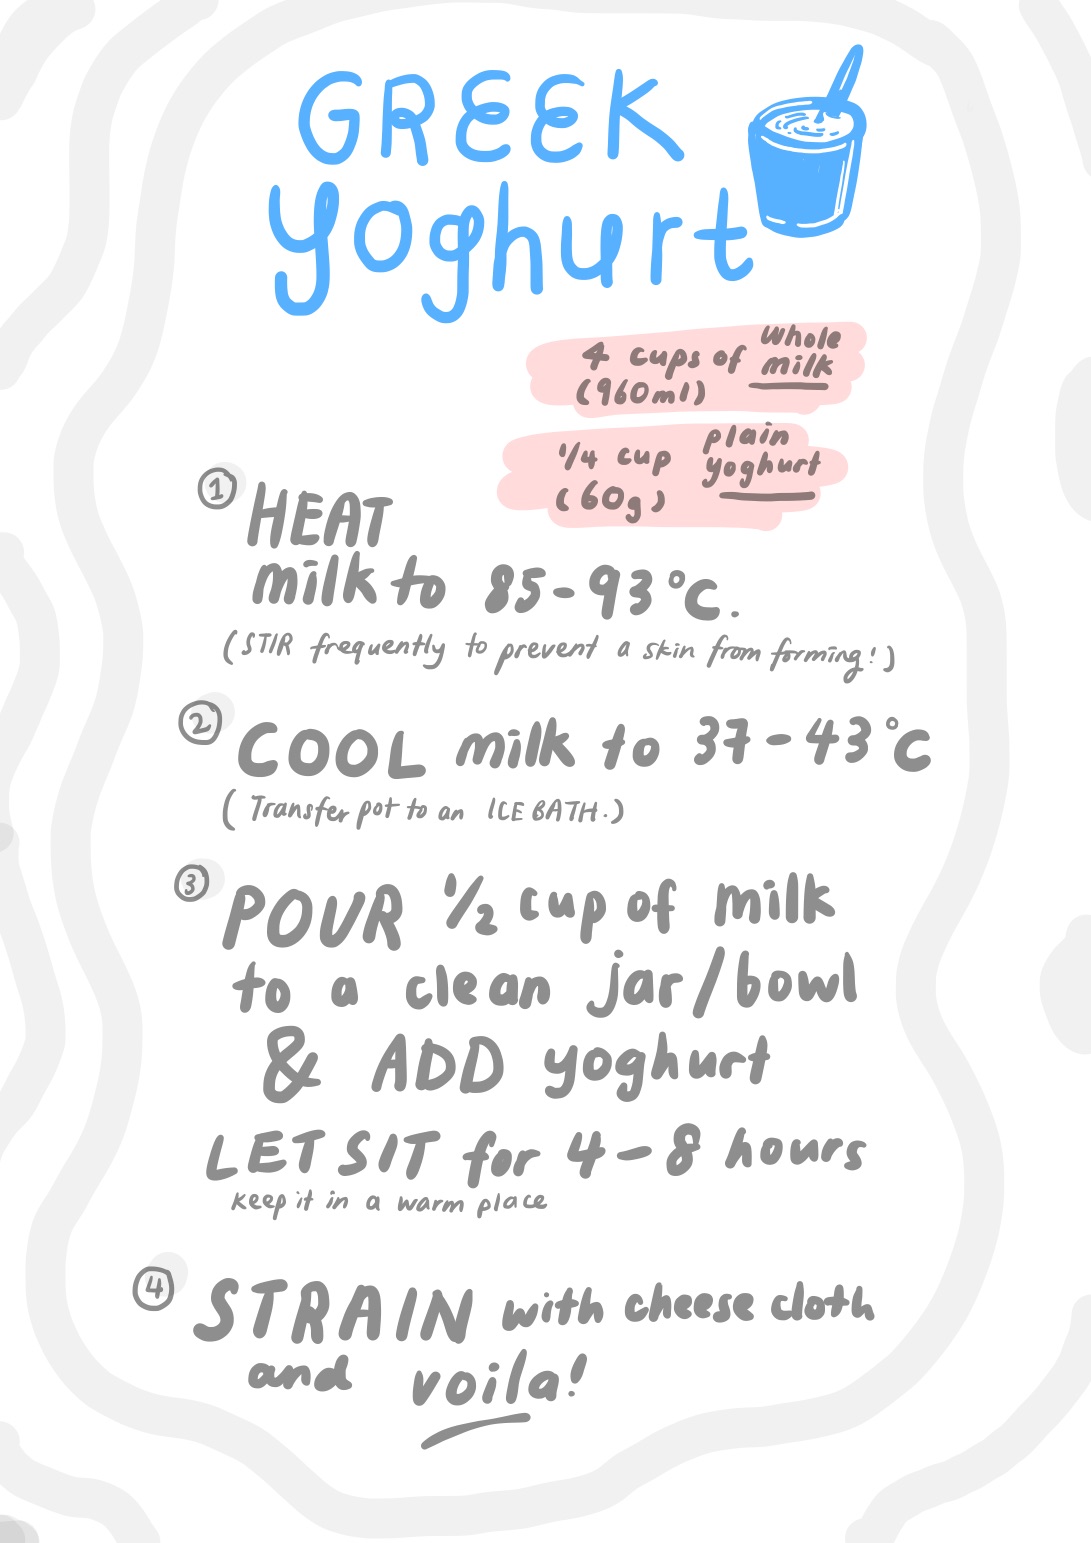 GREEK
Yoghurt
4 cups of whole milk
(960ml)
1/4 cup plain yoghurt
(60g)
1 HEAT
milk to 85-93°C.
(STIR frequently to prevent a skin from forming!)
2 COOL milk to 37-43°C
(Transfer pot to an ICE BATH.)
3 POUR 1/2 cup of milk
to a clean jar/bowl
& ADD yoghurt
LET SIT for 4-8 hours
keep it in a warm place
4 STRAIN with cheese cloth
and voila!